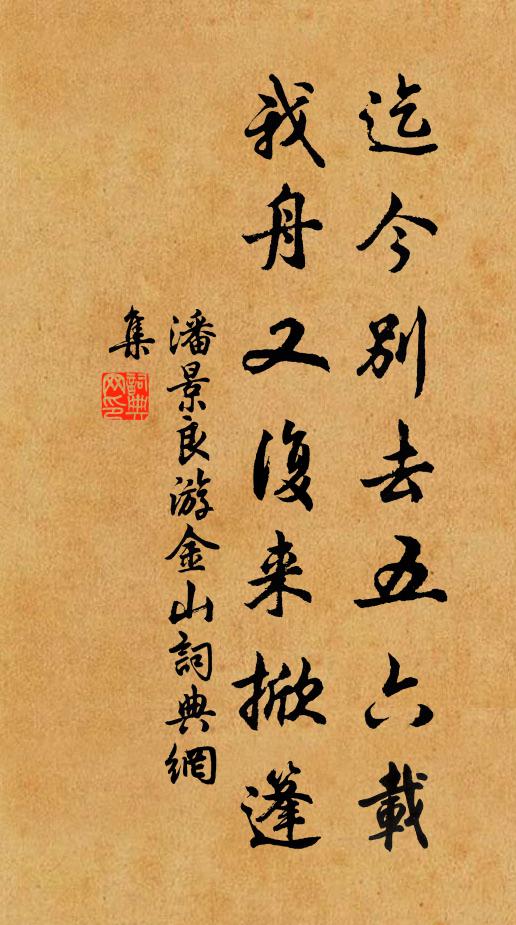 迄今別去五六載
我舟又復来掀蓬
潘景良游金山詞典網
集
詞典网印